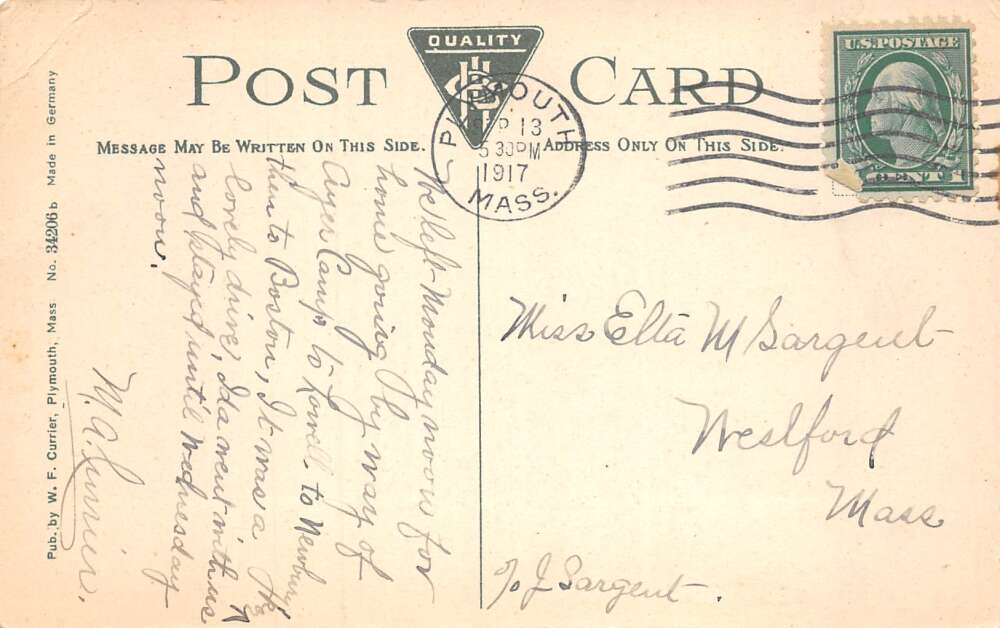 POST CARD
QUALITY
MESSAGE MAY BE WRITTEN ON THIS SIDE.
ADDRESS ONLY ON THIS SIDE.
PLYMOUTH
SEP 13
5 30PM
1917
MASS.
U.S. POSTAGE
CENT
We left Monday noon for
home going by way of
Ayer Camp to Lowell to Newbury
then to Boston, It was a
lovely drive, Ida went with us
and stayed until Wednesday
noon.
M. A. Currier.
Miss Etta M Sargent
Westford
Mass
c/o J Sargent.
Pub. by W. F. Currier, Plymouth, Mass No. 34206 b Made in Germany